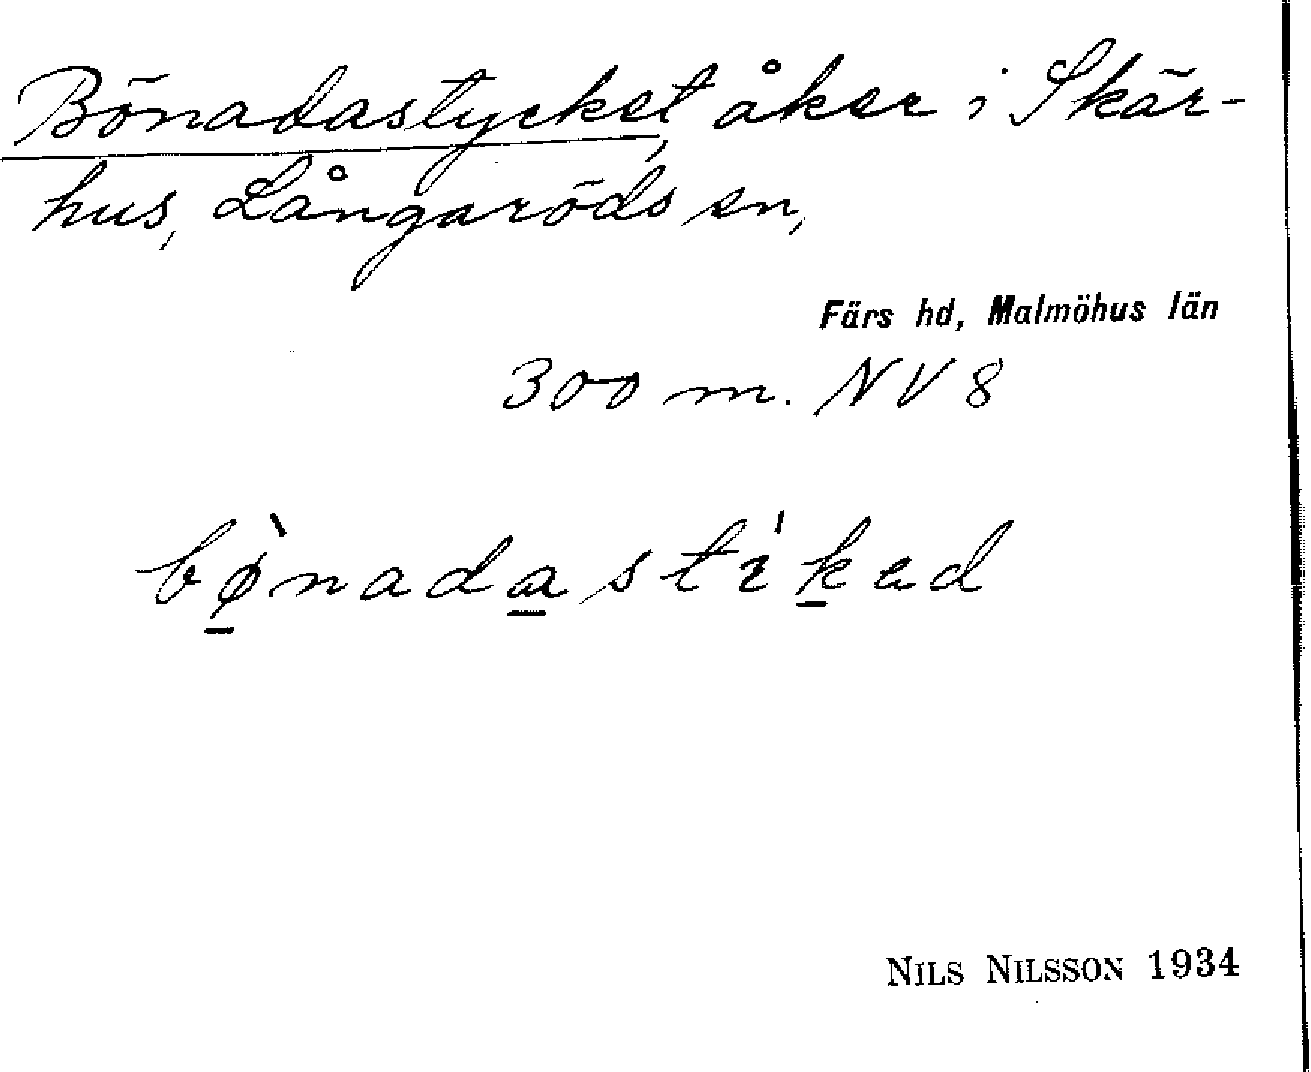 Bönadastycket, åker i Skär-
hus, Långaröds sn,
Färs hd, Malmöhus län
300 m. NV 8
bø̱̀nada̱stìḵed
NILS NILSSON 1934